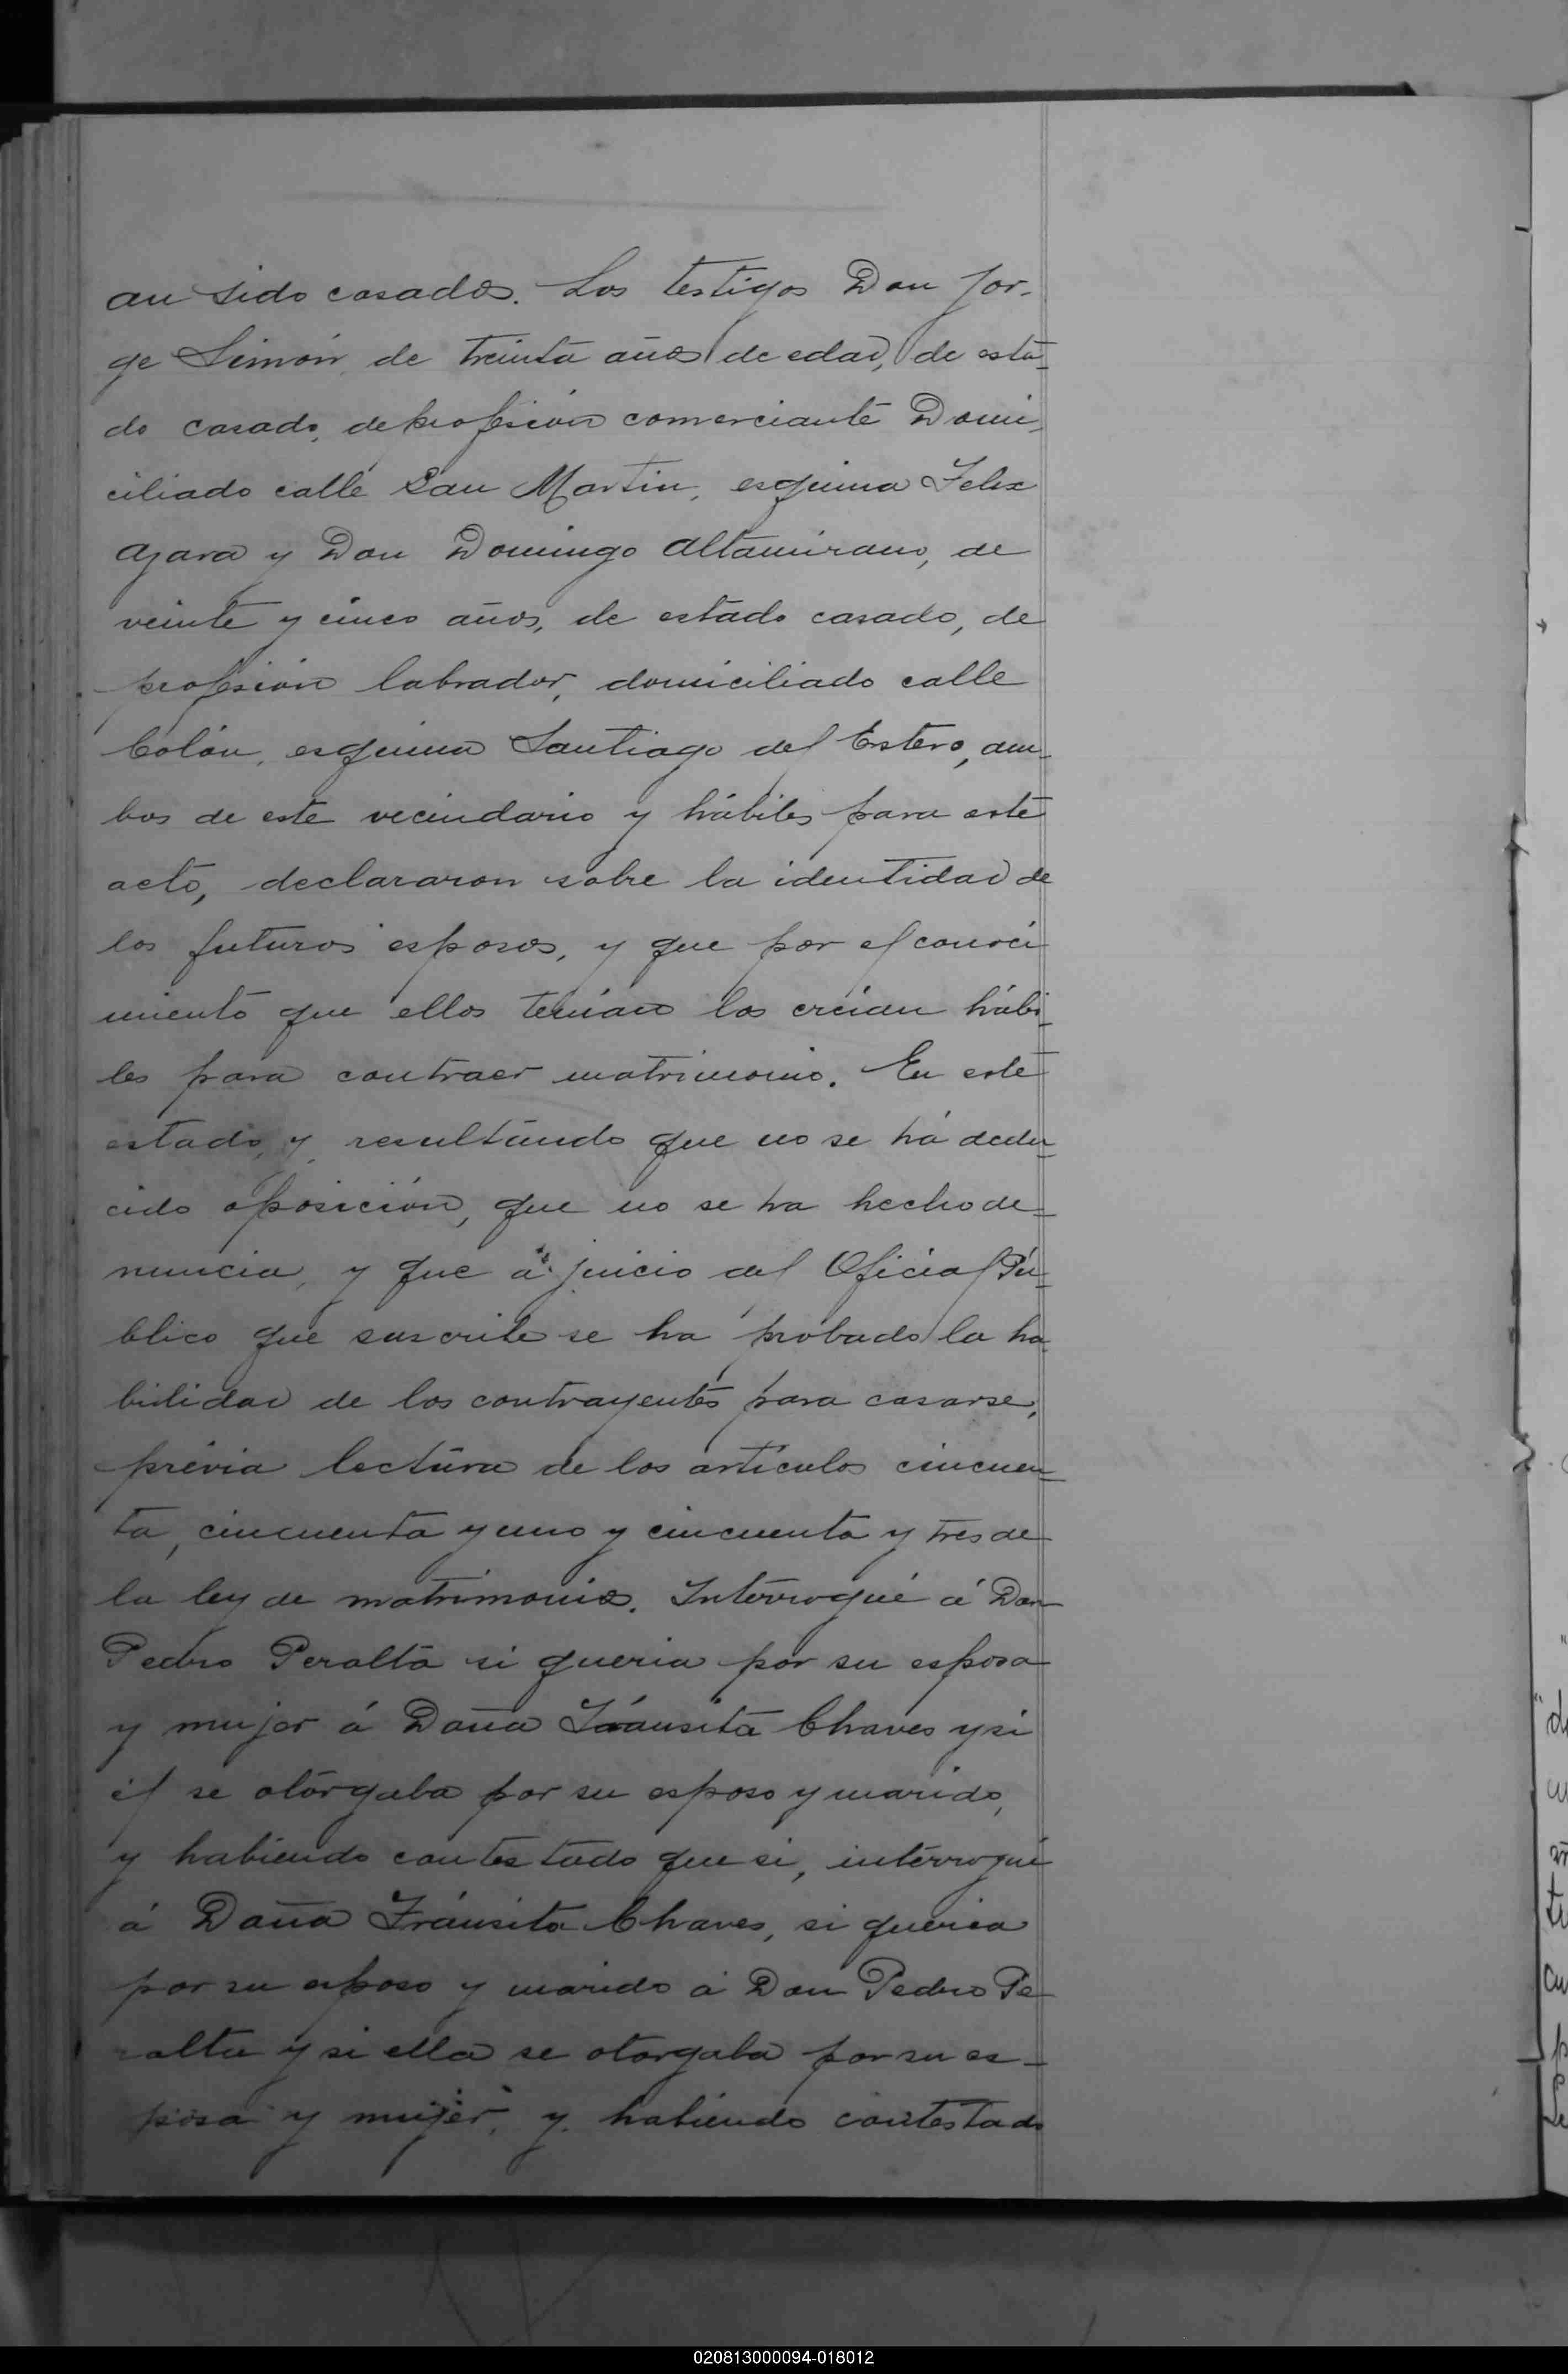 an sido casados. Los testigos Don Jor-
ge Simón, de treinta años de edad, de esta-
do casado, de profesión comerciante Domi-
ciliado calle San Martin, esquina Felix
Azara y Don Domingo Altamirano, de
veinte y cinco años, de estado casado, de
profesión labrador, domiciliado calle
Colón, esquina Santiago del Estero, am-
bos de este vecindario y hábiles para este
acto, declararon sobre la identidad de
los futuros esposos, y que por el conoci
miento que ellos tenían los creían hábi-
les para contraer matrimonio. En este
estado, y resultando que no se há dedu-
cido oposición, que no se ha hecho de-
nuncia, y que á juicio del Oficial Pú-
blico que suscribe se ha probado la ha-
bilidad de los contrayentes para casarse,
prévia lectura de los artículos cincuen-
ta, cincuenta y uno y cincuenta y tres de
la ley de matrimonio. Interrogué á Don
Pedro Peralta si queria por su esposa
y mujer á Doña Tránsita Chaves y si
él se otorgaba por su esposo y marido,
y habiendo contestado que si, interrogué
á Doña Tránsita Chaves, si queria
por su esposo y marido á Don Pedro Pe-
ralta y si ella se otorgaba por su es-
posa y mujer, y habiendo contestado
020813000094-018012